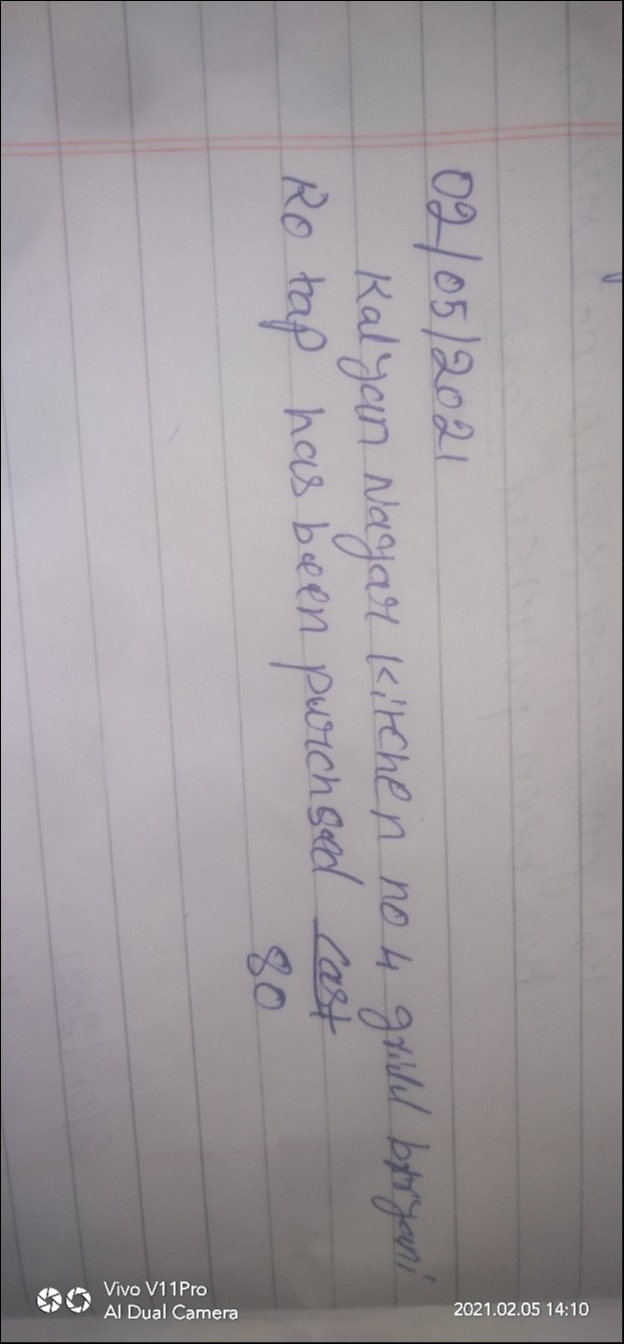 02/05/2021
Kalyan Nagar Kitchen no 4 grill biryani
Ro tap has been purchsed Cost
80
Vivo V11Pro
AI Dual Camera
2021.02.05 14:10